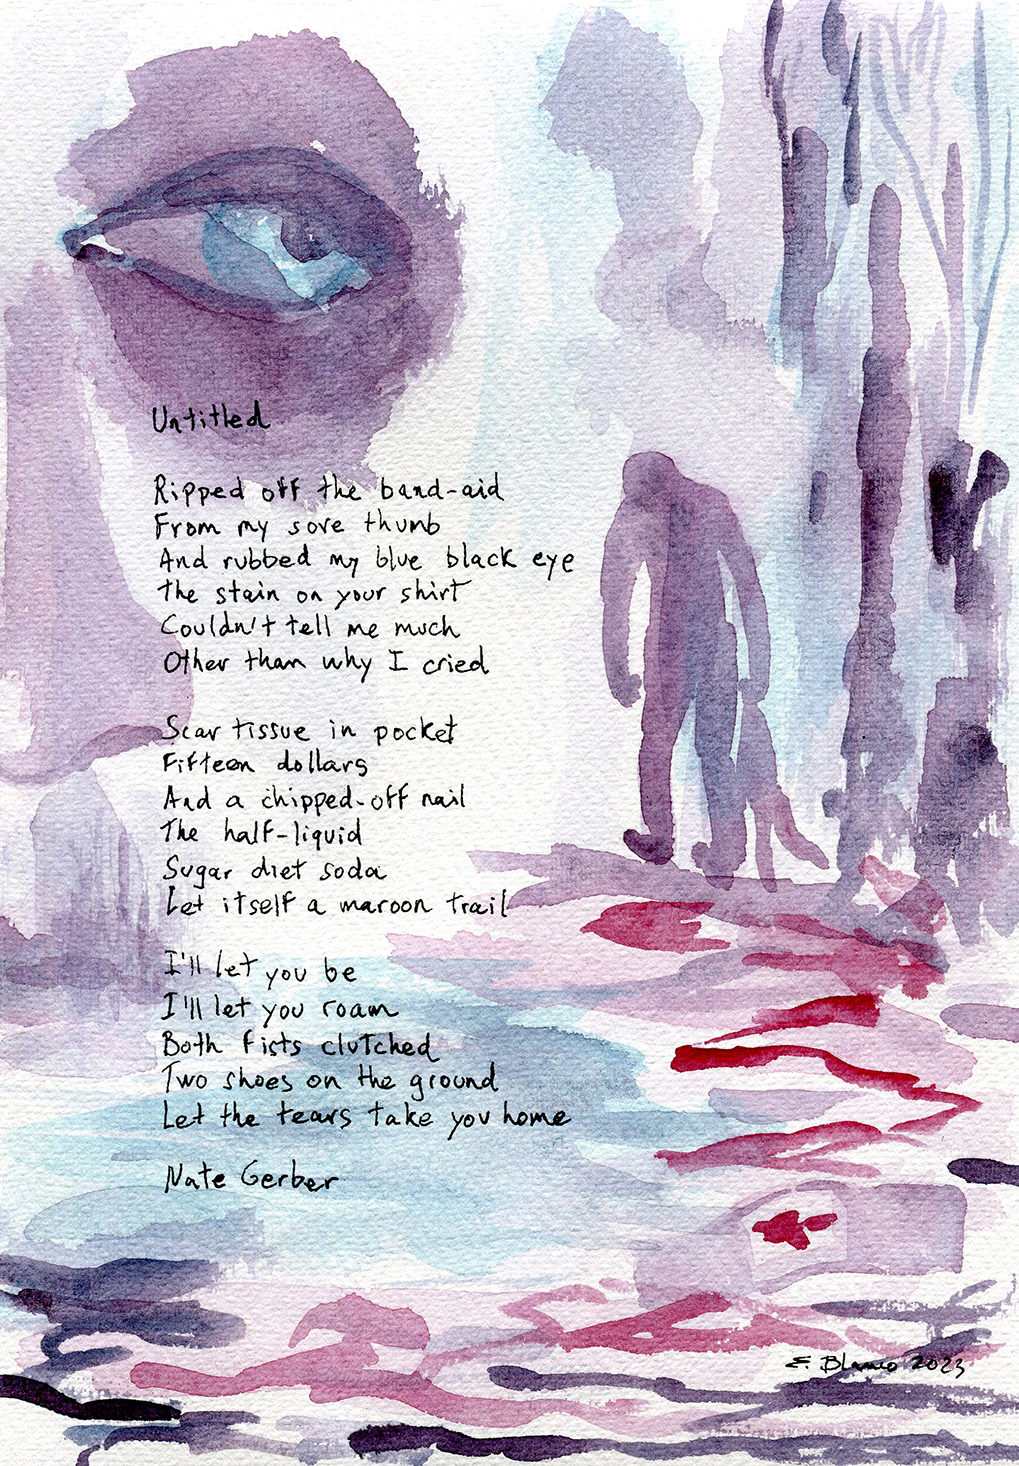 Untitled
Ripped off the band-aid
From my sore thumb
And rubbed my blue black eye
The stain on your shirt
Couldn't tell me much
Other than why I cried
Scar tissue in pocket
Fifteen dollars
And a chipped-off nail
The half-liquid
Sugar diet soda
Let itself a maroon trail
I'll let you be
I'll let you roam
Both fists clutched
Two shoes on the ground
Let the tears take you home
Nate Gerber
E. Blanco 2023